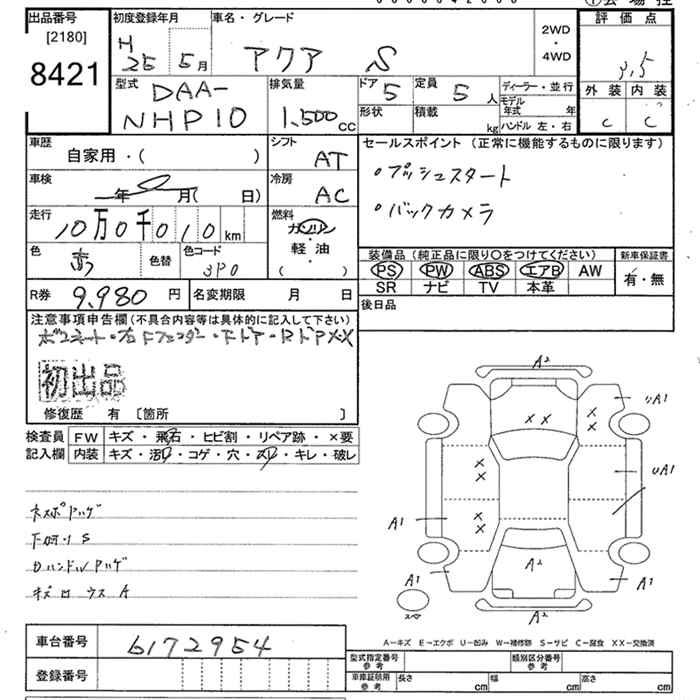 出品番号
[2180]
8421
初度登録年月
H 25 5月
車名・グレード
アクア S
2WD
・
4WD
評価点
3.5
外装 内装
C C
型式
DAA-
NHP10
排気量
1,500 CC
ドア
5
定員
5 人
形状
積載
kg
ディーラー・並行
モデル年式 年
ハンドル 左・右
車歴
自家用・( )
シフト
AT
車検
年 月( 日)
冷房
AC
走行
10万0千010km
燃料
ガソリン
・
軽油
( )
色
赤
色替
色コード
3P0
R券 9,980円
名変期限 月 日
セールスポイント (正常に機能するものに限ります)
・プッシュスタート
・バックカメラ
装備品 (純正品に限り〇をつけてください)
PS PW ABS エアB AW
SR ナビ TV 本革
新車保証書
有・無
後日品
注意事項申告欄(不具合内容等は具体的に記入して下さい)
ボンネット・右Fフェンダー・Fドア・RドアXX
初出品
修復歴 有 〔箇所 〕
検査員
記入欄
FW キズ・飛石・ヒビ割・リペア跡・×要
内装 キズ・汚れ・コゲ・穴・スレ・キレ・破レ
キズ
A
A2
UA1
UA1
A1
A1
A1
A1
A2
A2
スペア
A-キズ E-エクボ U-凹み W-補修跡 S-サビ C-腐食 XX-交換済
車台番号 6172954
登録番号
型式指定番号
参考
類別区分番号
参考
車庫証明用
参考
長さ cm
幅 cm
高さ cm